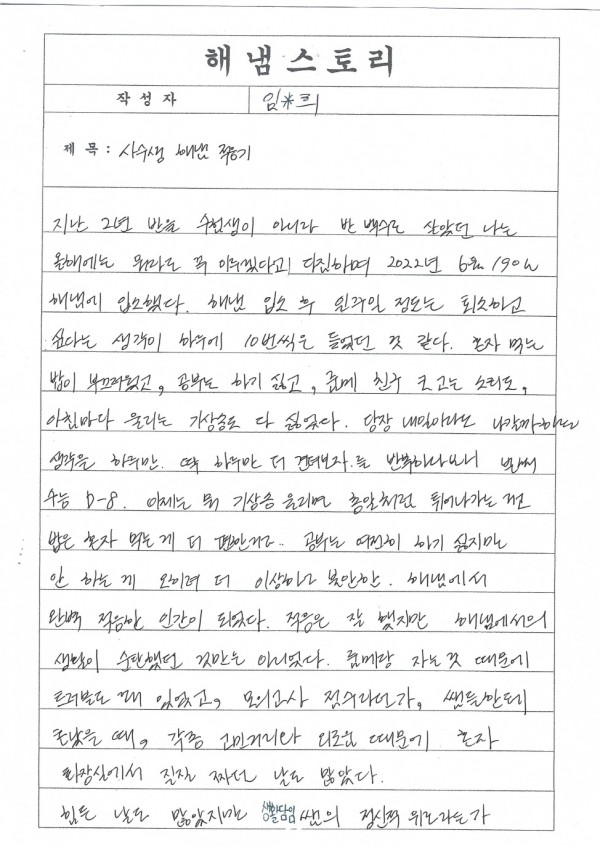 해냄스토리
작성자 임*희
제목 : 사수생 해냄 적응기
지난 2년 반을 수험생이 아니라 반 백수로 살았던 나는
올해에는 뭐라도 꼭 이루겠다고 다짐하며 2022년 6월 19일
해냄에 입소했다. 해냄 입소 후 일주일 정도는 퇴소하고
싶다는 생각이 하루에 10번씩은 들었던 것 같다. 혼자 먹는
밥이 부끄러웠고, 공부는 하기 싫고, 룸메 친구 코 고는 소리도,
아침마다 울리는 기상송도 다 싫었다. 당장 내일이라도 나갈까하는
생각을 하루만. 딱 하루만 더 견뎌보자.를 반복하다보니 벌써
수능 D-8. 이제는 뭐 기상송 울리면 총알처럼 튀어나가는 건
밥은 혼자 먹는게 더 편안하고.. 공부는 여전히 하기 싫지만
안 하는게 오히려 더 이상하고 불안한. 해냄에서
완벽 적응한 인간이 되었다. 적응은 잘 했지만 해냄에서의
생활이 순탄했던 것만은 아니었다. 룸메랑 자는 것 때문에
트러블도 꽤 있었고, 모의고사 점수라던가, 쌤들한테
혼났을 때, 각종 고민거리와 외로움 때문에 혼자
화장실에서 질질 짜던 날도 많았다.
힘든 날도 많았지만 생활담임 쌤의 정신적 위로라는가